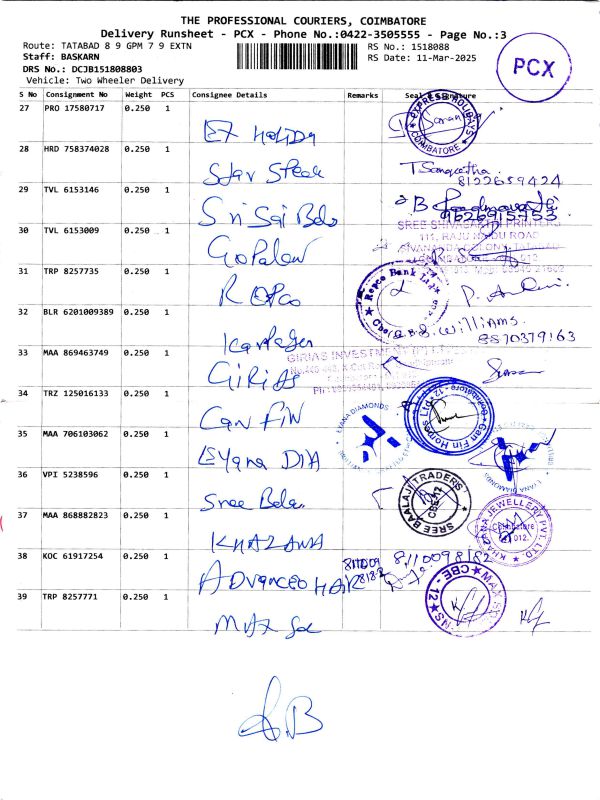 THE PROFESSIONAL COURIERS, COIMBATORE
Delivery Runsheet - PCX - Phone No.:0422-3505555 - Page No.:3
Route: TATABAD 8 9 GPM 7 9 EXTN
RS No.: 1518088
Staff: BASKARN
RS Date: 11-Mar-2025
DRS No.: DCJB151808803
Vehicle: Two Wheeler Delivery
PCX
S No Consignment No Weight PCS Consignee Details Remarks Seal & Signature
27 PRO 17580717 0.250 1
Ex Holiday
EXPRESS HOLIDAYS
COIMBATORE
28 HRD 758374028 0.250 1
Star Steel
T Sangeetha
8122659424
29 TVL 6153146 0.250 1
Sri Sai Balo
B
9626915753
30 TVL 6153009 0.250 1
Gopalan
SREE SHIVASAKTHI PRINTERS
111, RAJU NAIDU ROAD
31 TRP 8257735 0.250 1
REPCO
Repco Bank Ltd
32 BLR 6201009389 0.250 1
S. Williams
8870379163
33 MAA 869463749 0.250 1
GIRIAS
GIRIAS INVESTMENT (P) LTD
34 TRZ 125016133 0.250 1
Can Fin
Can Fin Homes Ltd
Coimbatore - 12
35 MAA 706103062 0.250 1
Eyana DIA
36 VPI 5238596 0.250 1
Sree Bala
SREE BAALAJI TRADERS
CBE-12
37 MAA 868882823 0.250 1
KHAZANA
KHAZANA JEWELLERY PVT. LTD.
Coimbatore
38 KOC 61917254 0.250 1
ADVANCED HAIR
8110098182
39 TRP 8257771 0.250 1
Max
CBE - 12